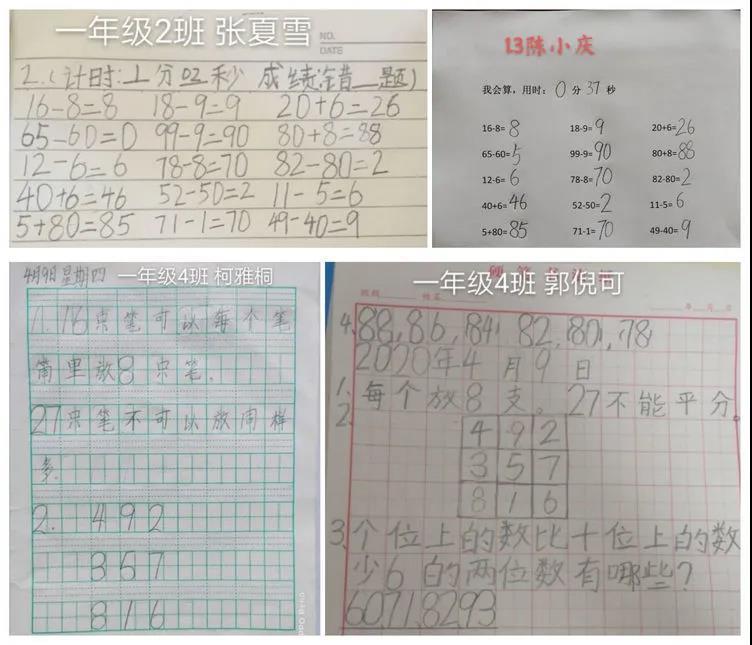 一年级2班 张夏雪
NO.
DATE
2.(计时:1分02秒 成绩:错__题)
16-8=8 18-9=9 20+6=26
65-60=0 99-9=90 80+8=88
12-6=6 78-8=70 82-80=2
40+6=46 52-50=2 11-5=6
5+80=85 71-1=70 49-40=9
13陈小庆
我会算,用时: 0 分 37 秒
16-8=8 18-9=9 20+6=26
65-60=5 99-9=90 80+8=88
12-6=6 78-8=70 82-80=2
40+6=46 52-50=2 11-5=6
5+80=85 71-1=70 49-40=9
4月9日星期四
一年级4班 柯雅桐
1.16只笔可以每个笔
筒里放8只笔.
27只笔不可以放同样
多.
2. 4 9 2
3 5 7
8 1 6
一年级4班 郭倪可
4.88,86,84,82,80,78
2020年4月9日
1.每个放8支。27不能平分。
2.
4 9 2
3 5 7
8 1 6
3.个位上的数比十位上的数
少6的两位数有哪些?
60,71,82,93